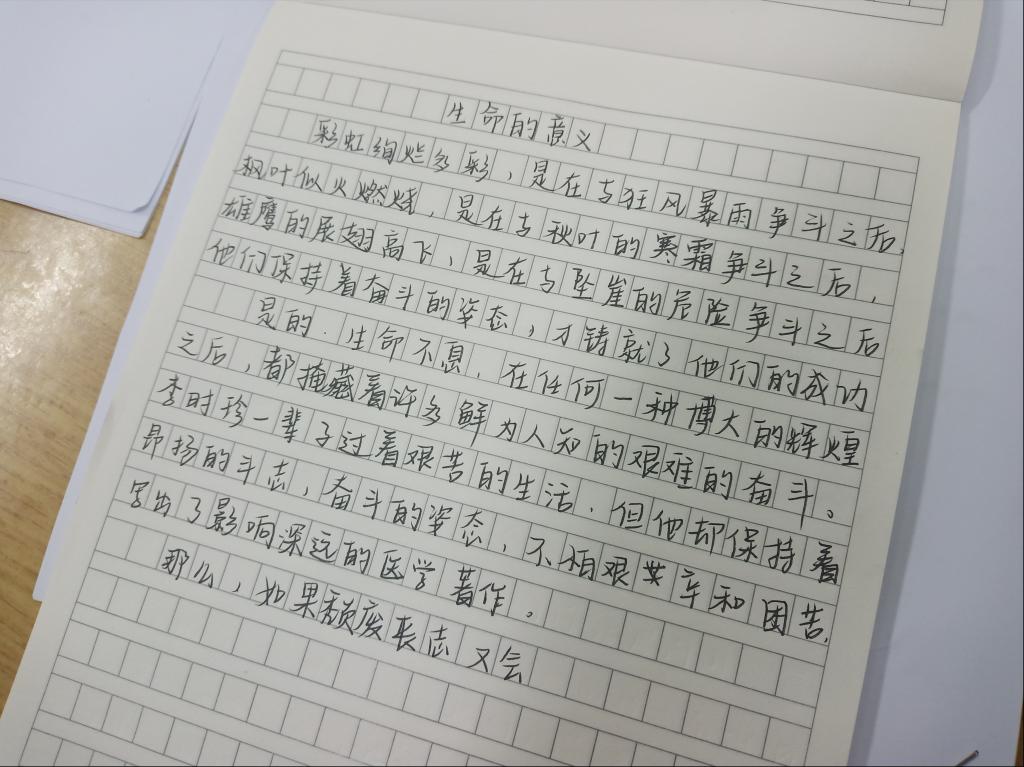 生命的意义
彩虹绚烂多彩，是在与狂风暴雨争斗之后，
枫叶似火燃烧，是在与秋叶的寒霜争斗之后，
雄鹰的展翅高飞，是在与坠崖的危险争斗之后
他们保持着奋斗的姿态，才铸就了他们的成功
是的．生命不息．在任何一种博大的辉煌
之后，都掩藏着许多鲜为人知的艰难的奋斗。
李时珍一辈子过着艰苦的生活．但他却保持着
昂扬的斗志，奋斗的姿态，不怕艰辛和困苦，
写出了影响深远的医学著作。
那么，如果颓废丧志又会